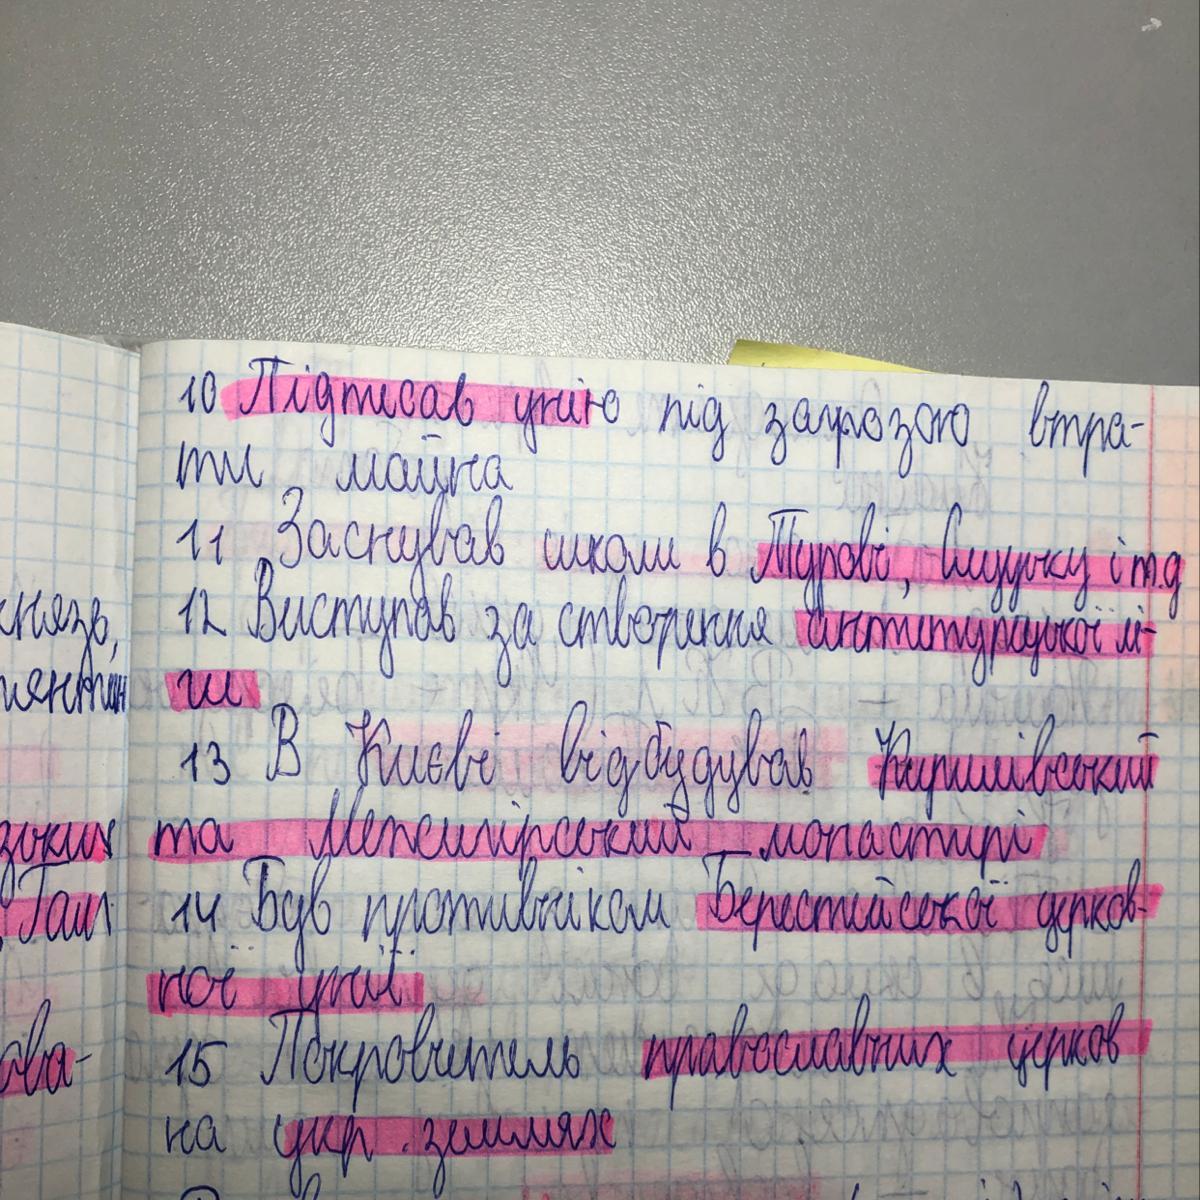 10 Підписав унію під загрозою втра-
ти майна
11 Заснував школи в Турові, Слуцьку і т.д
12 Виступав за створення антитурецької лі-
ги
13 В Києві відбудував Кирилівський
та Межигірський монастирі
14 Був противником Берестейської церков-
ної унії
15 Покровитель православних церков
на укр. землях
князь,